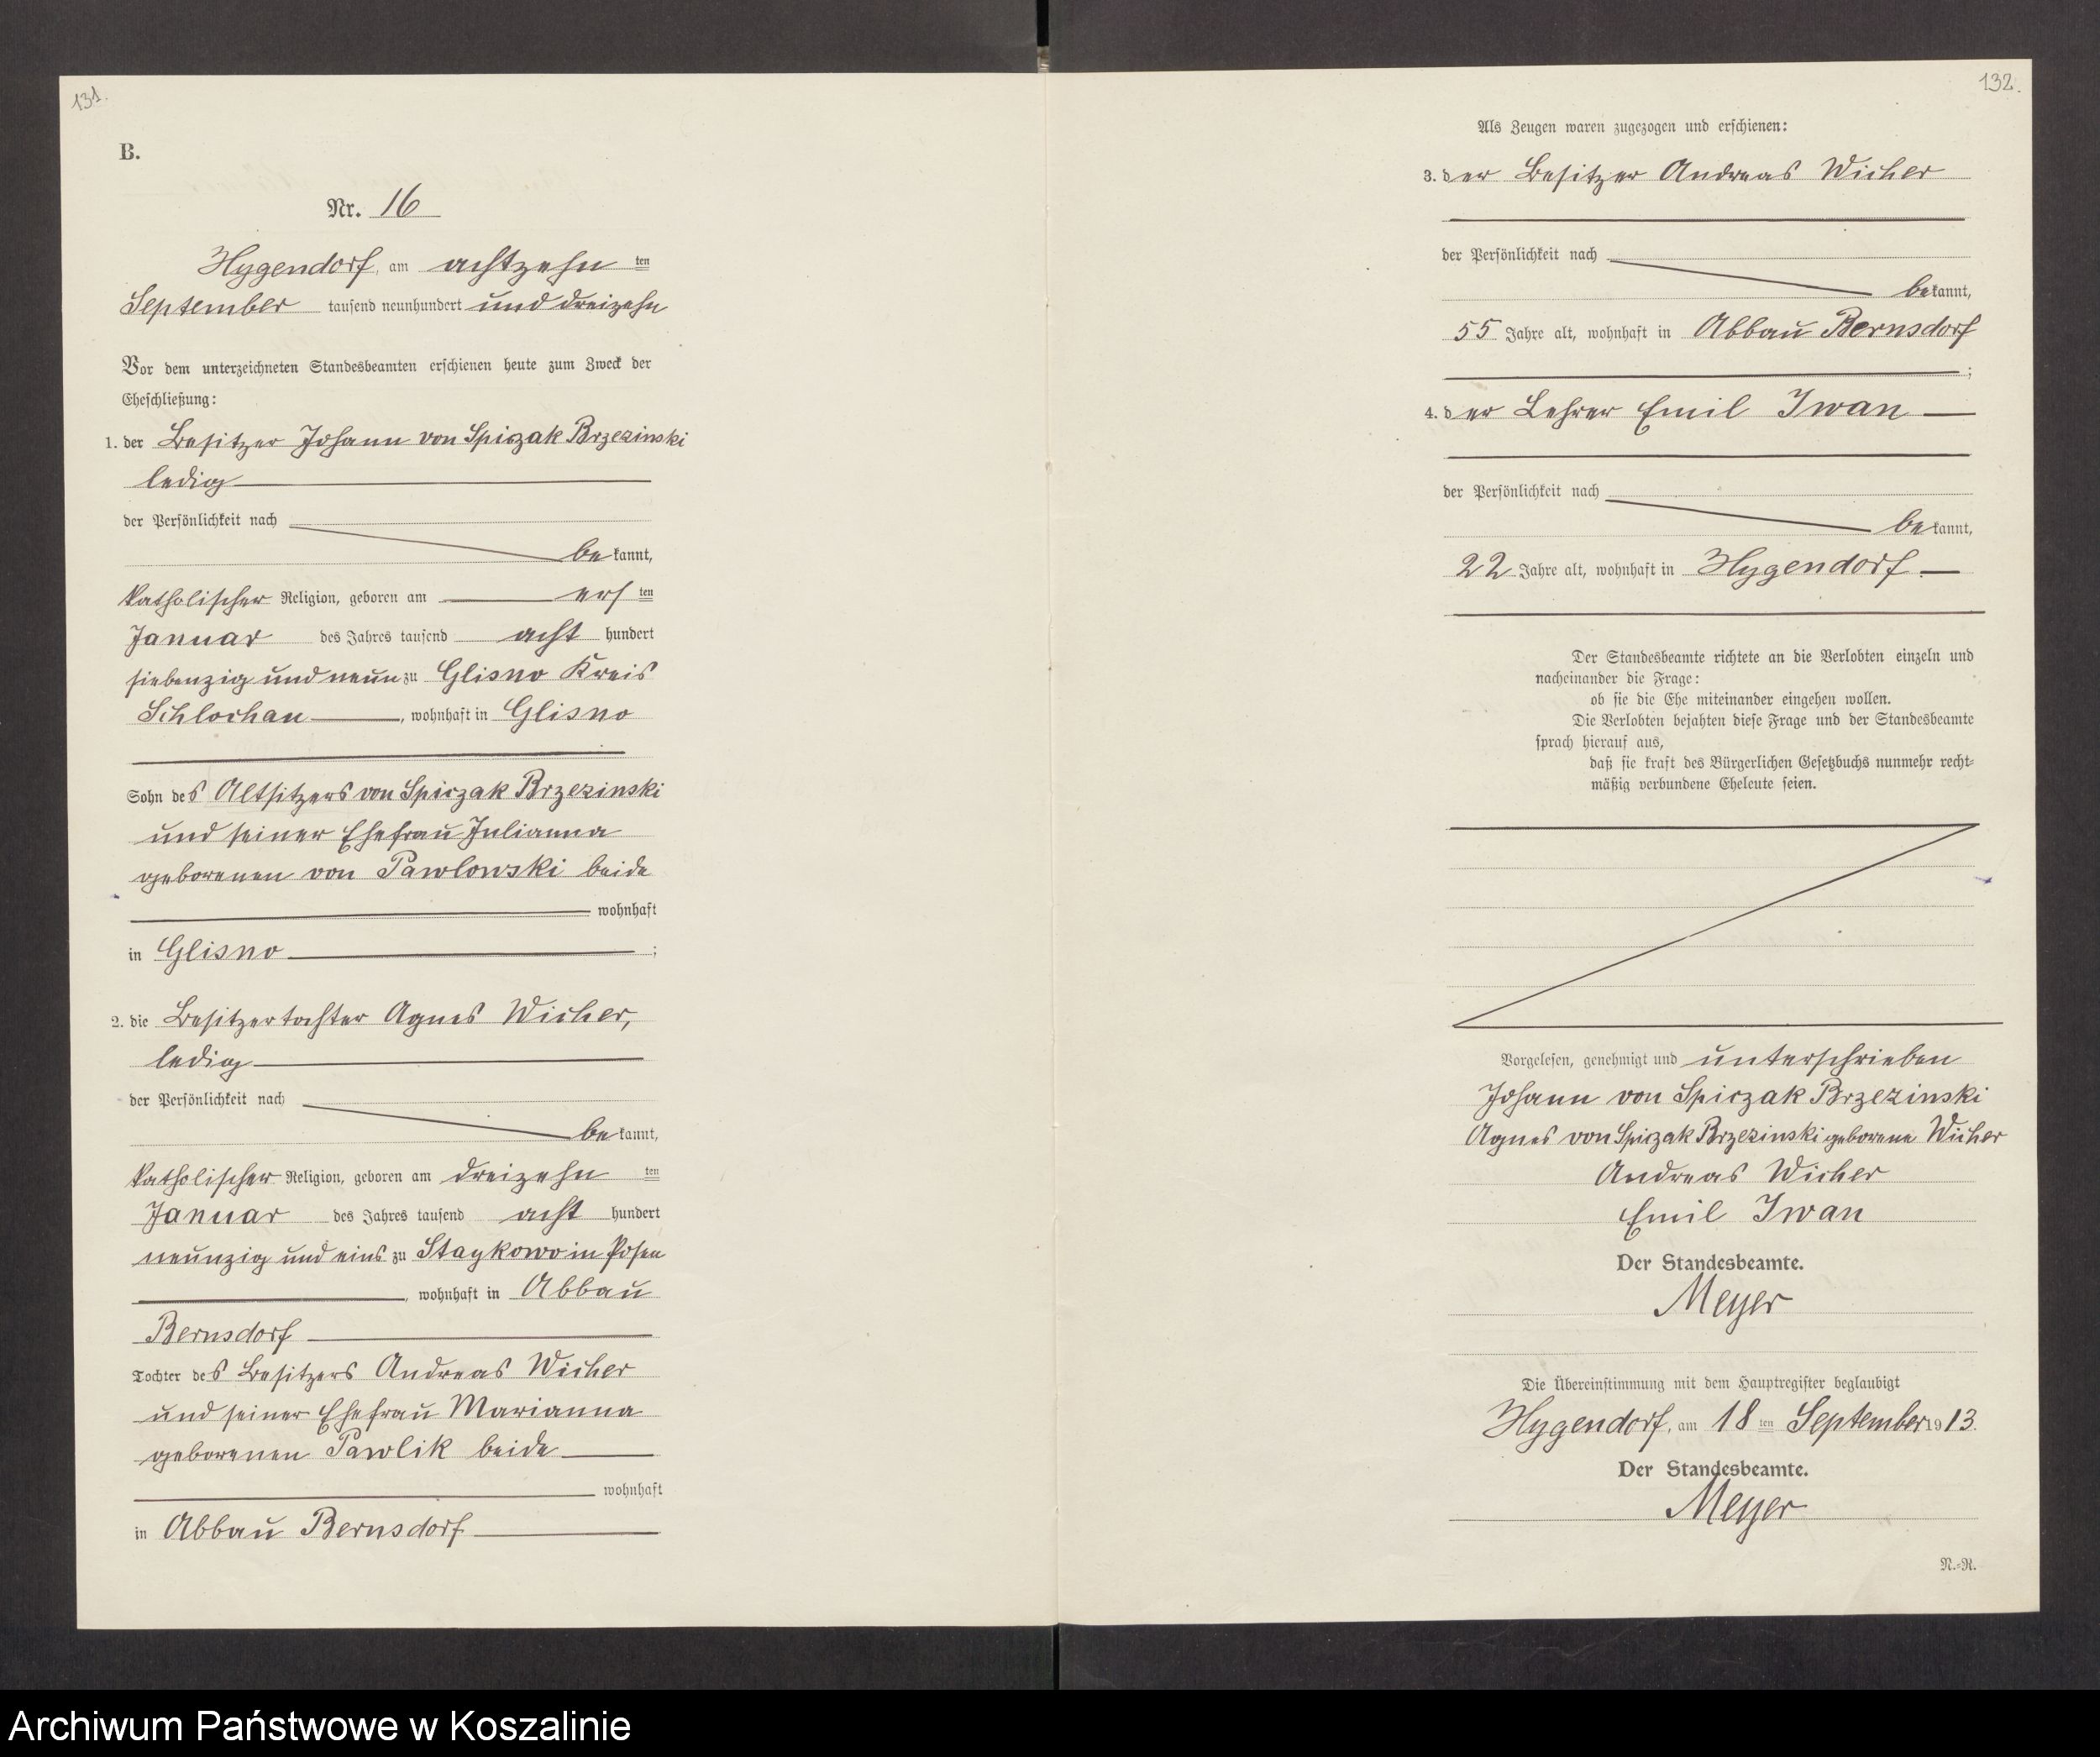 131.
B.
Nr. 16
Hygendorf, am achtzehn ten
September tausend neunhundert und dreizehn
Vor dem unterzeichneten Standesbeamten erschienen heute zum Zweck der
Eheschließung:
1. der Besitzer Johann von Spiczak Brzezinski
ledig
der Persönlichkeit nach
be kannt,
katholischer Religion, geboren am ers ten
Januar des Jahres tausend acht hundert
siebenzig und neun zu Glisno Kreis
Schlochau, wohnhaft in Glisno
Sohn des Altsitzers von Spiczak Brzezinski
und seiner Ehefrau Julianna
geborenen von Pawlowski beide
wohnhaft
in Glisno ;
2. die Besitzertochter Agnes Wicher,
ledig
der Persönlichkeit nach
be kannt,
katholischer Religion, geboren am dreizehn ten
Januar des Jahres tausend acht hundert
neunzig und eins zu Staykowo in Posen
, wohnhaft in Abbau
Bernsdorf
Tochter des Besitzers Andreas Wicher
und seiner Ehefrau Marianna
geborenen Pawlik beide
wohnhaft
in Abbau Bernsdorf
132.
Als Zeugen waren zugezogen und erschienen:
3. der Besitzer Andreas Wicher
der Persönlichkeit nach
be kannt,
55 Jahre alt, wohnhaft in Abbau Bernsdorf
;
4. der Lehrer Emil Iwan
der Persönlichkeit nach
be kannt,
22 Jahre alt, wohnhaft in Hygendorf.
Der Standesbeamte richtete an die Verlobten einzeln und
nacheinander die Frage:
ob sie die Ehe miteinander eingehen wollen.
Die Verlobten bejahten diese Frage und der Standesbeamte
sprach hierauf aus,
daß sie kraft des Bürgerlichen Gesetzbuchs nunmehr recht-
mäßig verbundene Eheleute seien.
Vorgelesen, genehmigt und unterschrieben
Johann von Spiczak Brzezinski
Agnes von Spiczak Brzezinski geborene Wicher
Andreas Wicher
Emil Iwan
Der Standesbeamte.
Meyer
Die Übereinstimmung mit dem Hauptregister beglaubigt
Hygendorf, am 18 ten September 1913.
Der Standesbeamte.
Meyer
N.-R.
Archiwum Państwowe w Koszalinie